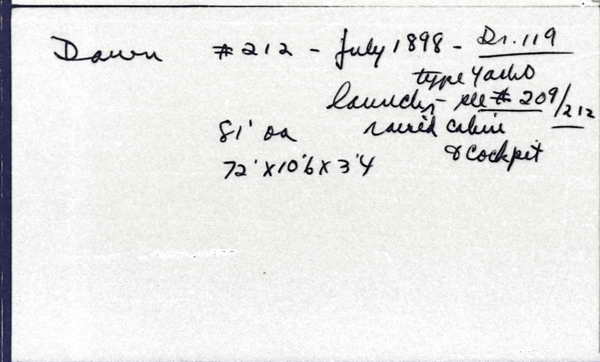 Dawn #212 - July 1898 - Dr. 119
type Yacht
launch - see # 209/212
81' oa raised cabin
& cockpit
72' x 10'6 x 3'4